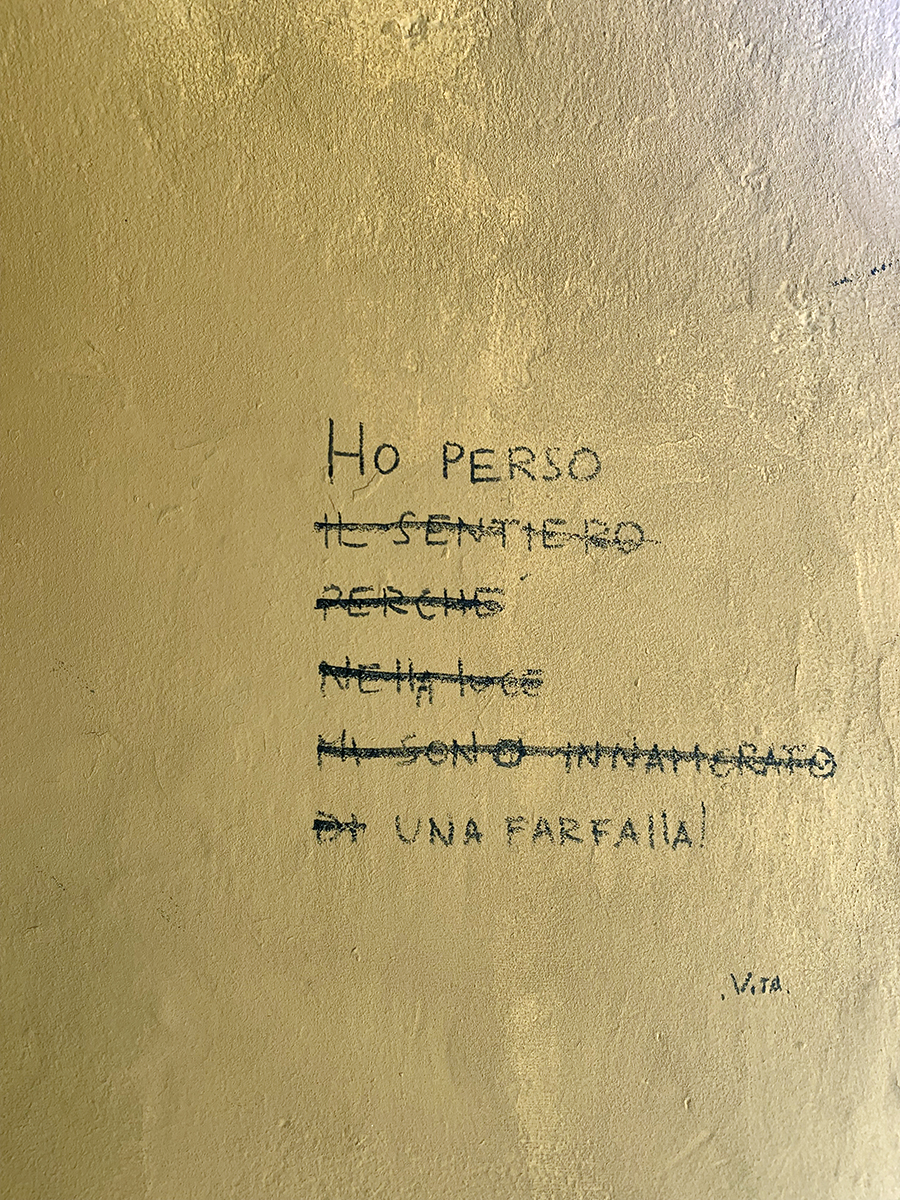 Ho PERSO
IL SENTIERO
PERCHÉ
NEllA lUCE
MI SONO INNAMORATO
DI UNA FARFAllA!
.VITA.